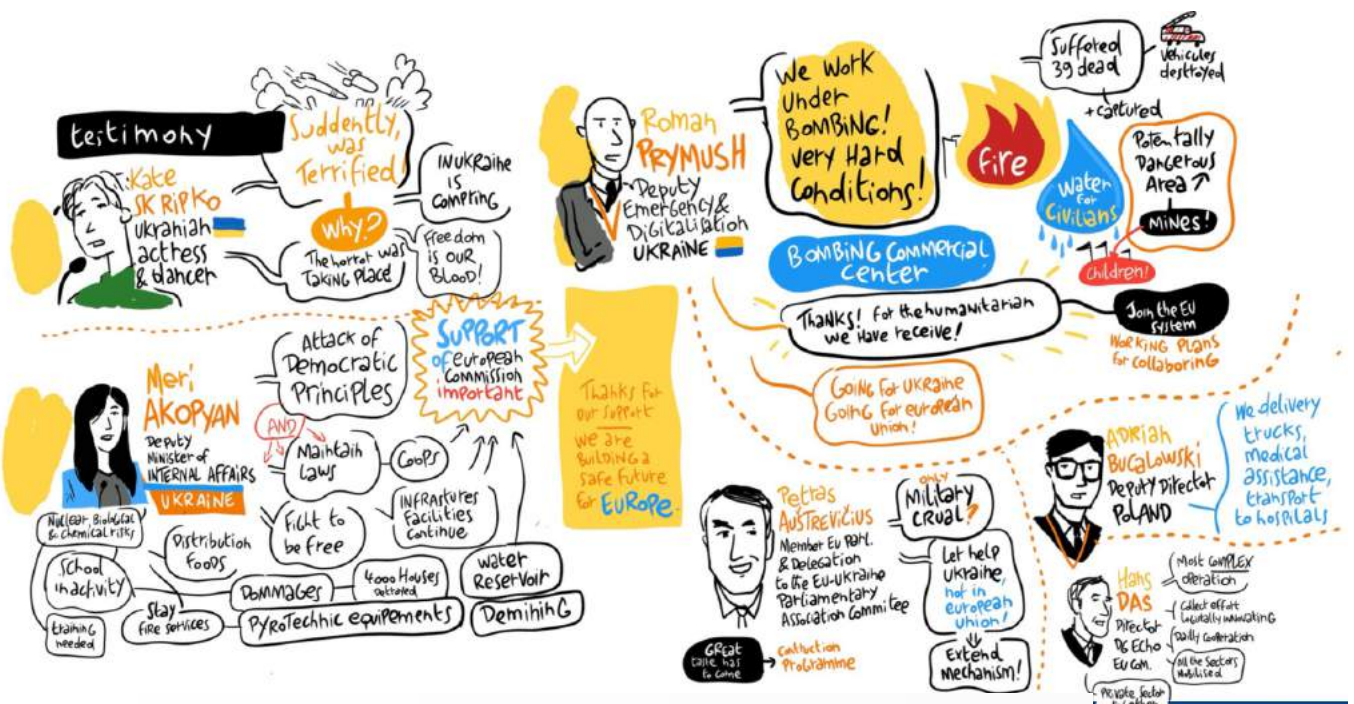 testimony
Kate
SKRipKo
ukraniah
actress
& dancer
Suddently,
was
Terrified!
Why?
The horror was
TakiNG PLACE
IN UKRaiNe
iS
COMPTiNG
Freedom
is OUR
BLOOD!
Meri
AKOPYAN
Deputy
Minister of
INTERNAL AFFAIRS
UKRAINE
Attack of
Democratic
Principles
AND
Maintain
Laws
Coops
SUPPORT
of european
Commission
important
Nuclear, Biological
& Chemical risks
SCHOOL
inactivity
training
needed
Distribution
FooDS
Stay
fire services
Fight to
be free
INFRAstures
Facilities
Continue
DOMMAGES
4000 Houses
Destroyed
PyRoTechnic equipements
water
Reservoir
DemiNiNG
Thanks for
our support
we are
BuiLDiNG a
safe future
for EUROPe.
Roman
PRYMUSH
Deputy
Emergency &
Digitalisation
UKRAINE
We Work
Under
BoMBiNG!
very Hard
Conditions!
fire
Suffered
39 dead
+ captured
Vehicules
desktroyed
Water
for
Civilians
Potentally
Dangerous
Area
MiNES!
Children!
BoMBiNG CoMMercial
Center
Thanks! for the humanitarian
we Have receive!
Join the EU
system
WORKING PLANS
for collaboring
GOiNG for UKRaiNe
Going for european
union!
Petras
AUSTREViCiUS
Member EU Parl.
& Delegation
to the EU-Ukraine
Parliamentary
Association Commitee
GReat
taste has
to come
Contuction
PRogramme
ONLY
Military
CRUAL?
Let help
Ukraine,
not in
european
union!
Extend
mechanism!
ADRiaN
Bucalowski
Deputy Director
PoLAND
We delivery
trucks,
medical
assistance,
transport
to hospitals
Hans
DAS
Director
DG Echo
EU Com.
Most COMPLEX
operation
Collect effort
Logitally innovatiNG
Dailly Cooperation
All the Sectors
Mobilised
Private Sector